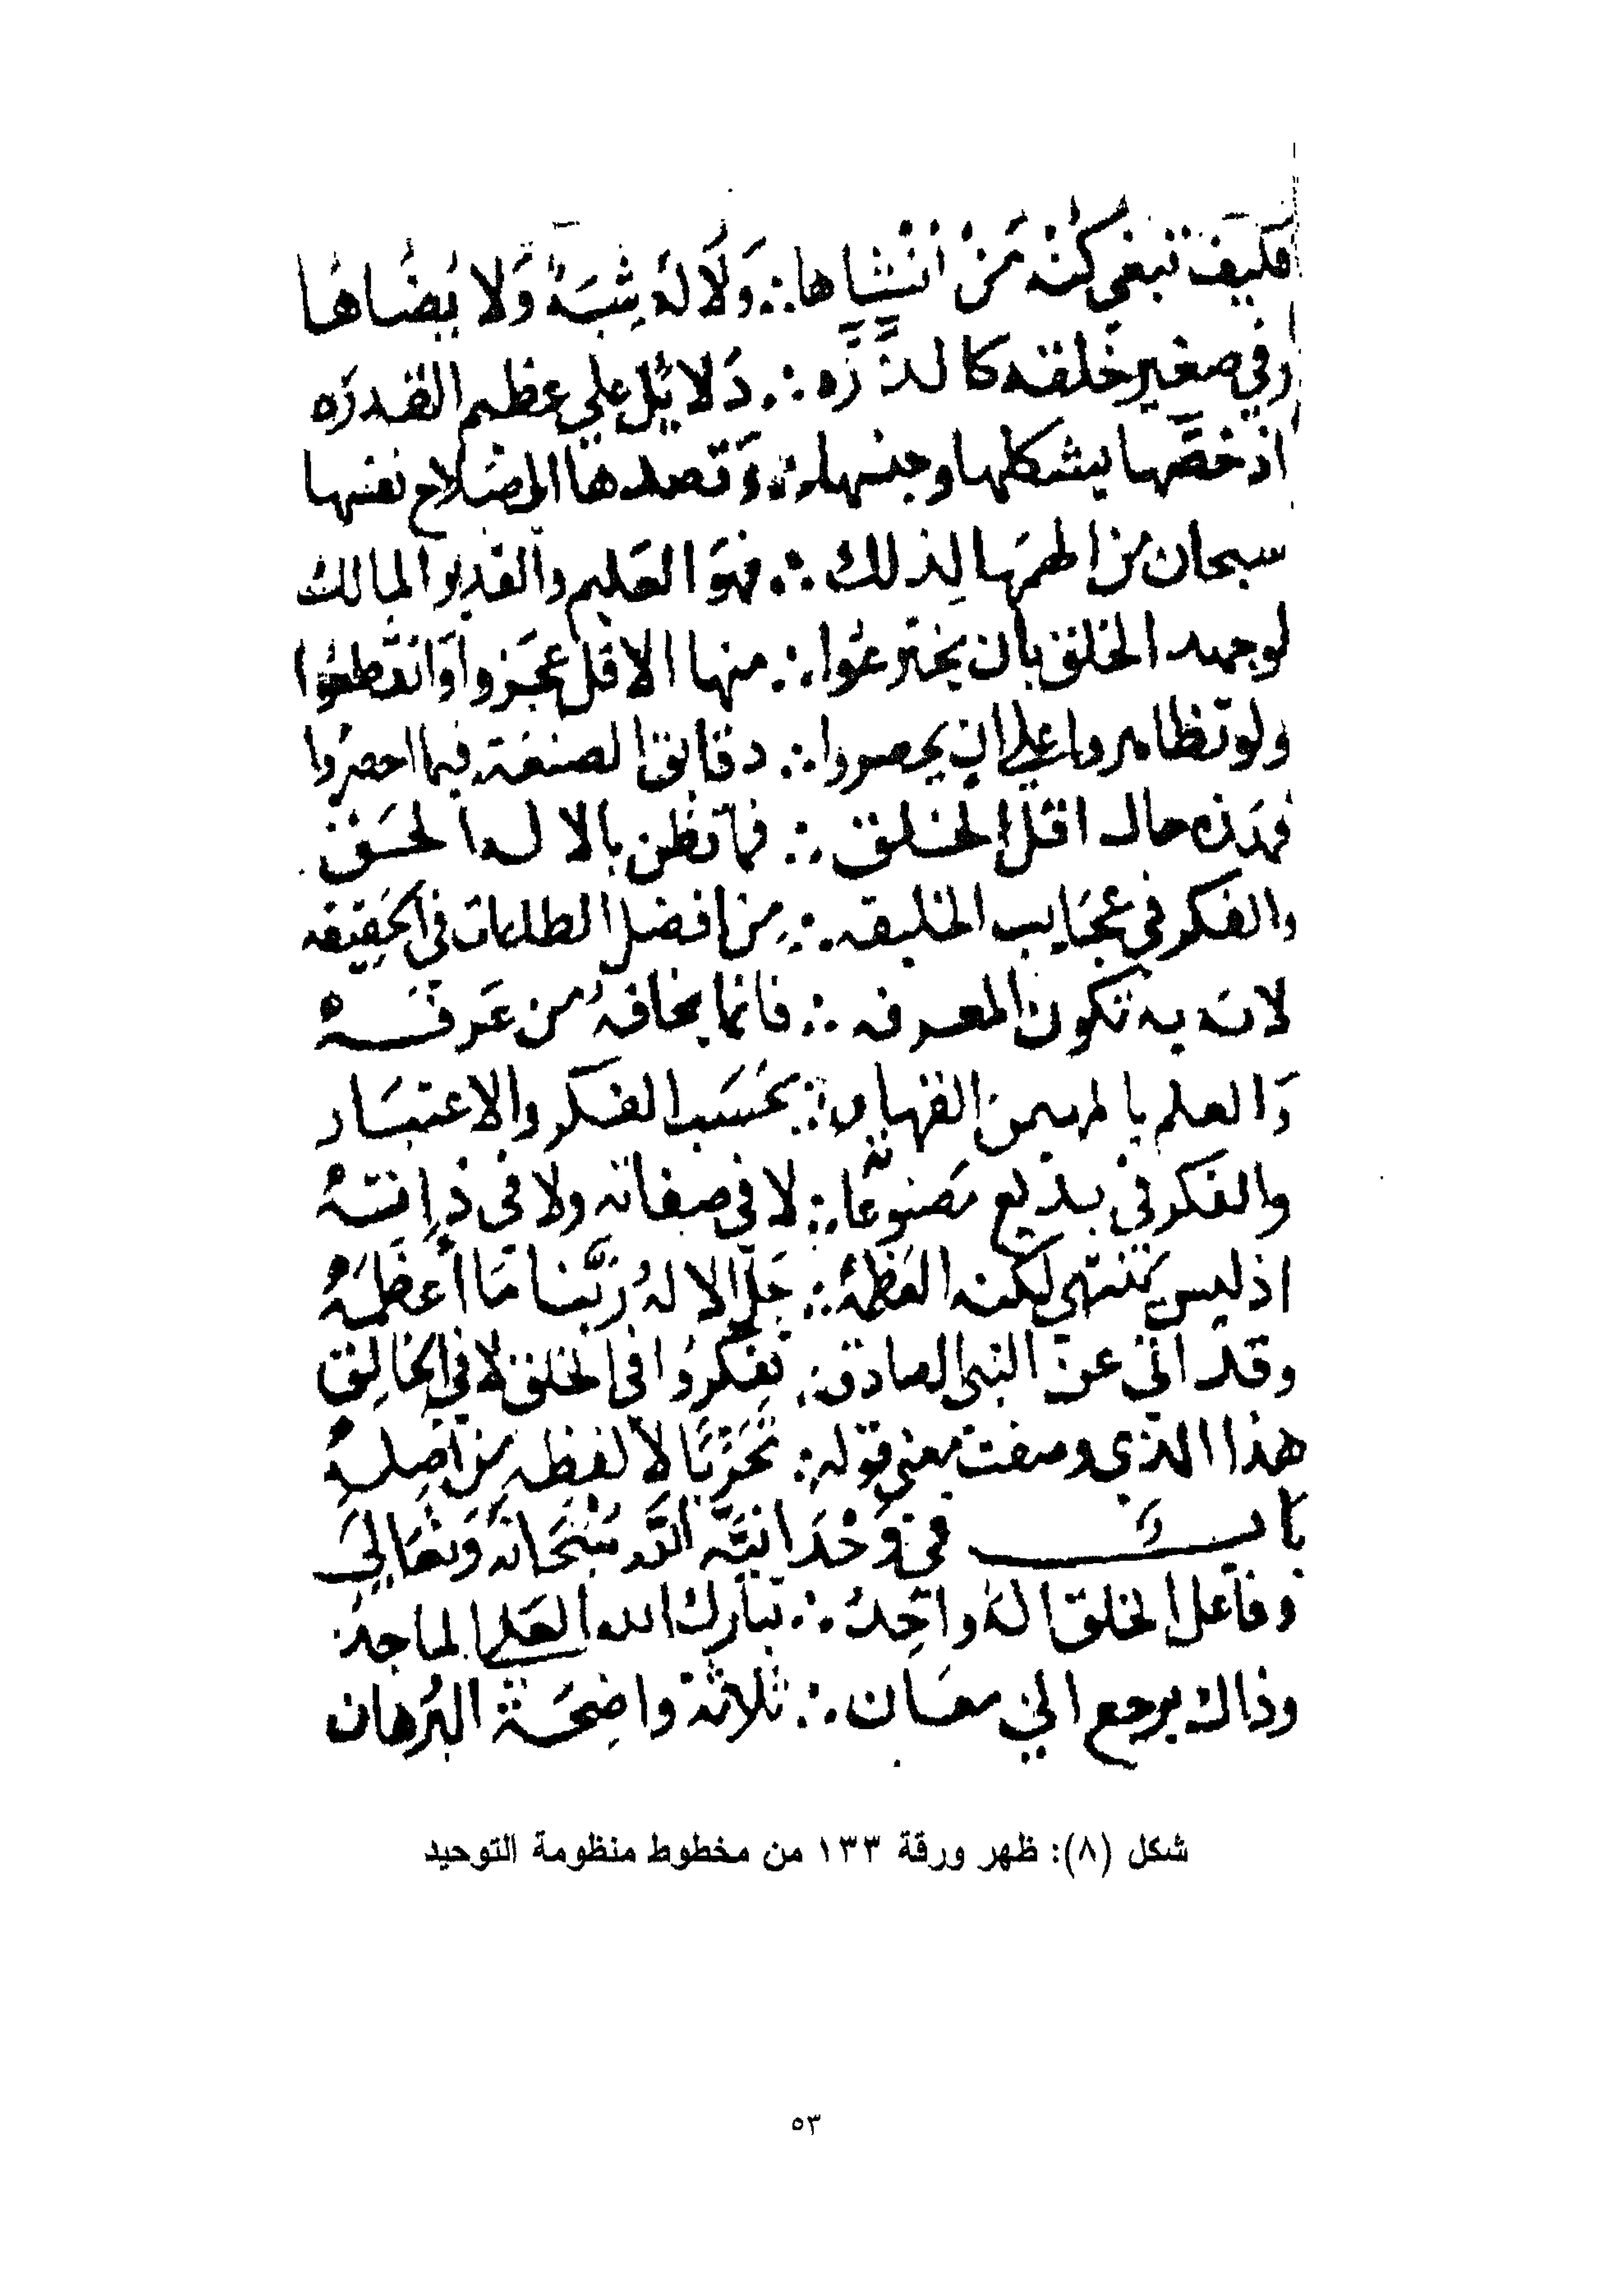 فكيف تبغي كُنْه مَنْ انْشاها ∴ وَلَا لهُ شِبَهٌ وَلا يُضَاهَا
وفي صغير خَلقه كالذَّرَّه ∴ دَلائل علي عظيم القدرَه
اذ خصَّها بشكلها وجنسها ∴ وَقصدها الى صَلاح نفسها
سبحان من الهمَها لِذلك ∴ فهوَ العَليم والقدير المالك
لو جهد الخلق بان يخترعُوا ∴ منها الاقل عجَزوا وَانقطعُوا
ولو تظاهروا علي ان يحصروا ∴ دقايق الصنعة فيها احصرُوا
فهَذه حال اقل الخلق ∴ فما تظن بالاله الحَق
والفكر في عجَايب الخليقه ∴ مِن افضل الطلبات في الحَقِيقه
لانه به تكون المعرفه ∴ فانما يخافهُ من عَرفَهْ
وَالعلم بالمهيمن القهار ∴ بحَسَب الفكر والاعتبَار
والفكر في بديع مَصنوعَاته ∴ لا في صفاته ولا في ذاتهْ
اذ ليس تنتهي لكنه العَظمَهْ ∴ جَلَّ الالهُ رَبُّنا مَا أعْظَمَهْ
وقد اتي عن النبي الصادق ∴ تفكرُوا في الخلق لا في الخالِق
هذا الذي وصفت معني قوله ∴ تَحَرِّيًا لا لفظه من اصلِهِ
بَاب في وَحْدَانيَّه الله سُبْحَانهُ وَتعَالَي
وفاعل الخلق الهٌ واحِدُ ∴ تبارك الله العَلي الماجدُ
وذاك يرجع الي معَان ∴ ثلاثة واضِحَة البُرهان
شكل (٨): ظهر ورقة ١٣٣ من مخطوط منظومة التوحيد
٥٣